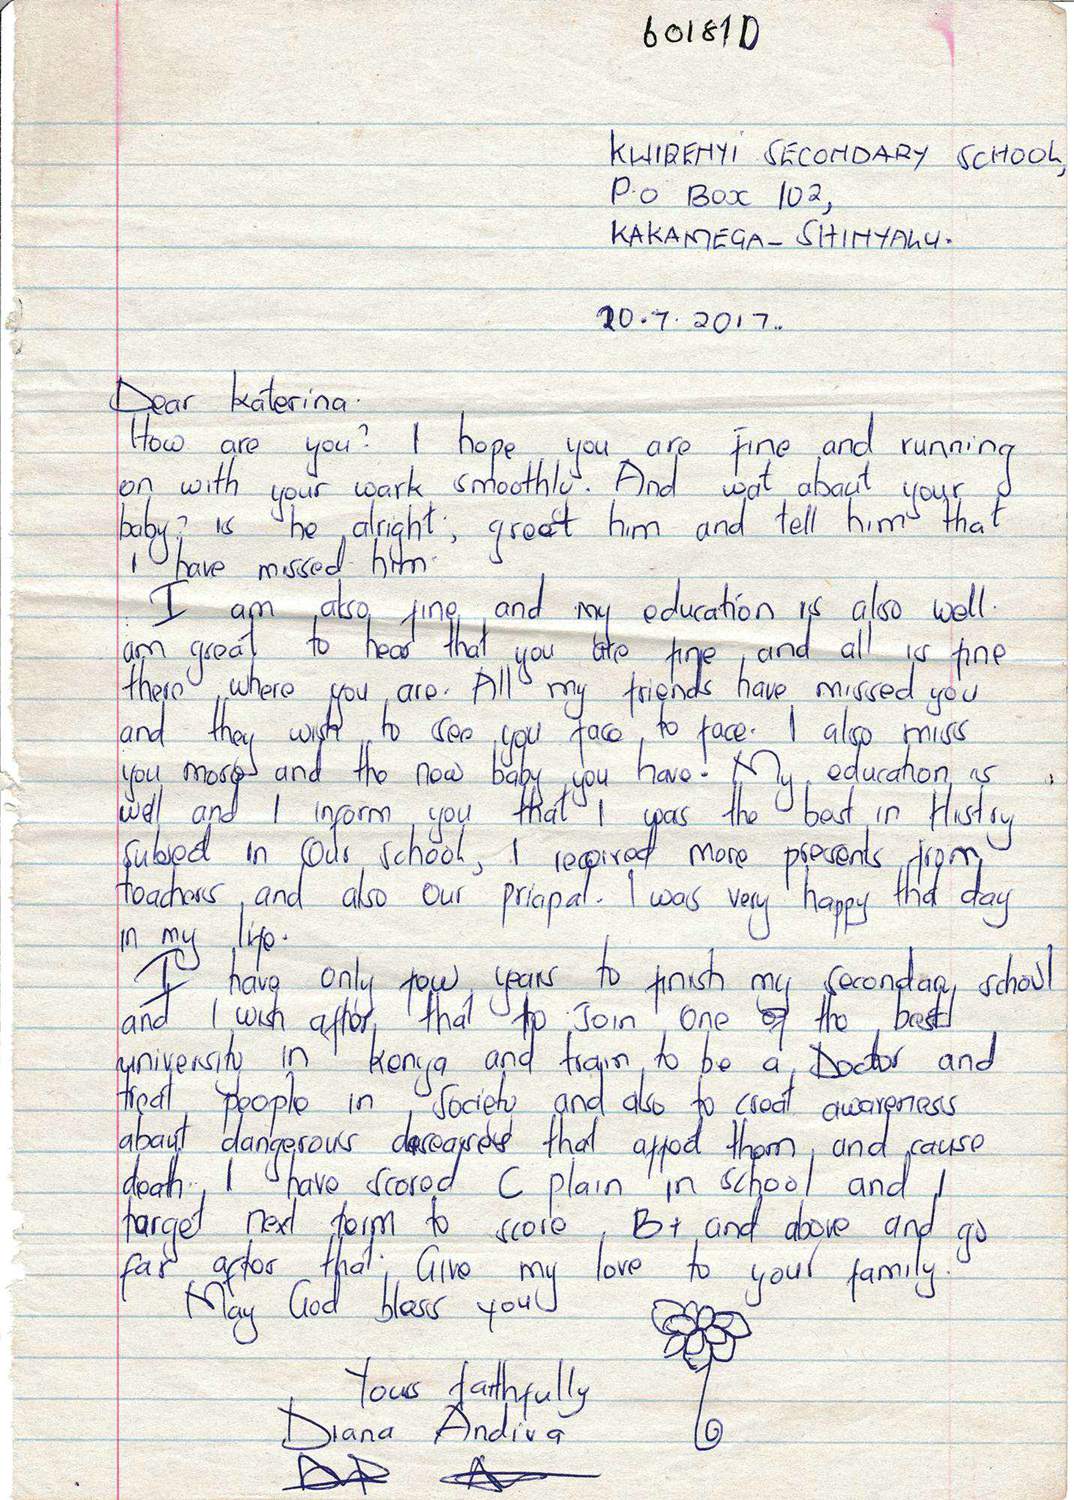 60181D
KWIRENYI SECONDARY SCHOOL,
P.O BOX 102,
KAKAMEGA - SHINYALU.
20.7.2017.
Dear Katerina.
How are you? I hope you are fine and running
on with your wark smoothly. And wat abaut your
baby? is he alright, greet him and tell him that
I have missed him.
I am also fine and my education is also well.
am great to hear that you are fine and all is fine
there where you are. All my friends have missed you
and they wish to see you face to face. I also miss
you more and the new baby you have. My education is
well and I inform you that I was the best in Histry
subject in our school, I received more presents from
teachers and also our pricipal. I was very happy that day
in my life.
I have only few years to finish my secondary school
and I wish after that to Join one of the best
university in Kenya and train to be a Doctor and
treat people in society and also to creat awareness
abaut dangerous that affect them and cause
death. I have scored C plain in school and I
target next term to score B+ and above and go
far after that. Give my love to your family.
May God bless you
Yours faithfully
Diana Andiva